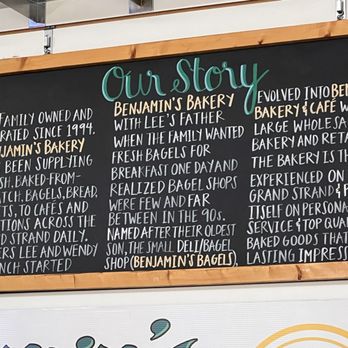 Our Story
FAMILY OWNED AND
RATED SINCE 1994.
NJAMIN'S BAKERY
BEEN SUPPLYING
SH, BAKED-FROM-
TCH, BAGELS, BREAD,
TS, TO CAFÉS AND
TIONS ACROSS THE
D STRAND DAILY.
ERS LEE AND WENDY
NCH STARTED
BENJAMIN'S BAKERY
WITH LEE'S FATHER
WHEN THE FAMILY WANTED
FRESH BAGELS FOR
BREAKFAST ONE DAY AND
REALIZED BAGEL SHOPS
WERE FEW AND FAR
BETWEEN IN THE 90s.
NAMED AFTER THEIR OLDEST
SON, THE SMALL DELI/BAGEL
SHOP (BENJAMIN'S BAGELS),
EVOLVED INTO BEN
BAKERY & CAFÉ W
LARGE WHOLESA
BAKERY AND RETA
THE BAKERY IS TH
EXPERIENCED ON
GRAND STRAND & P
ITSELF ON PERSONA
SERVICE & TOP QUA
BAKED GOODS THA
LASTING IMPRESS